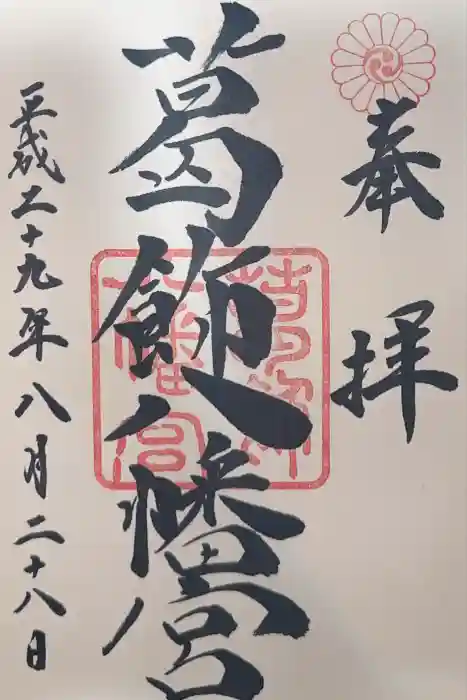 奉拝
葛飾八幡宮
平成二十九年八月二十八日
葛飾
八幡宮